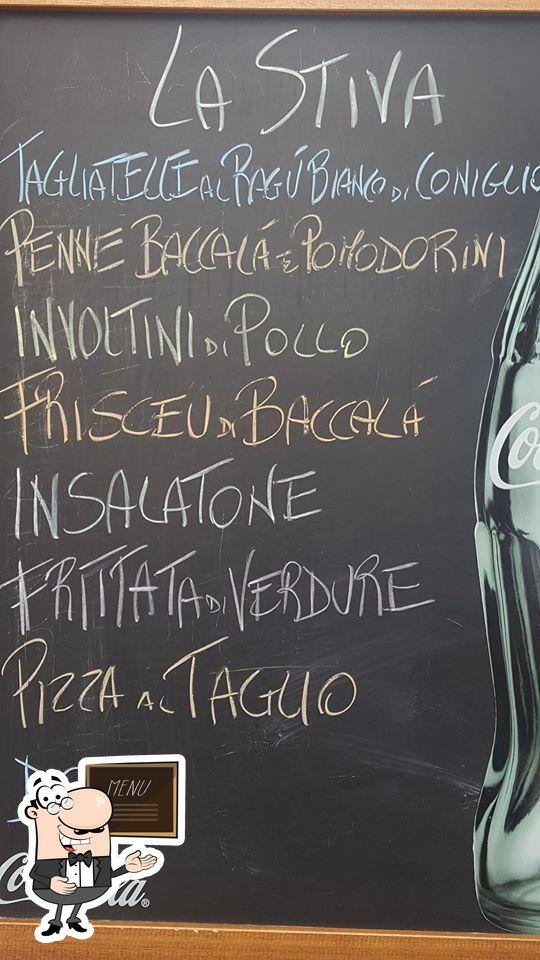 LA STIVA
TAGLIATELLE AL RAGÚ BIANCO DI CONIGLIO
PENNE BACCALÁ E POMODORINI
INVOLTINI DI POLLO
FRISCEU DI BACCALÁ
INSALATONE
FRITTATA DI VERDURE
PIZZA AL TAGLIO
MENU